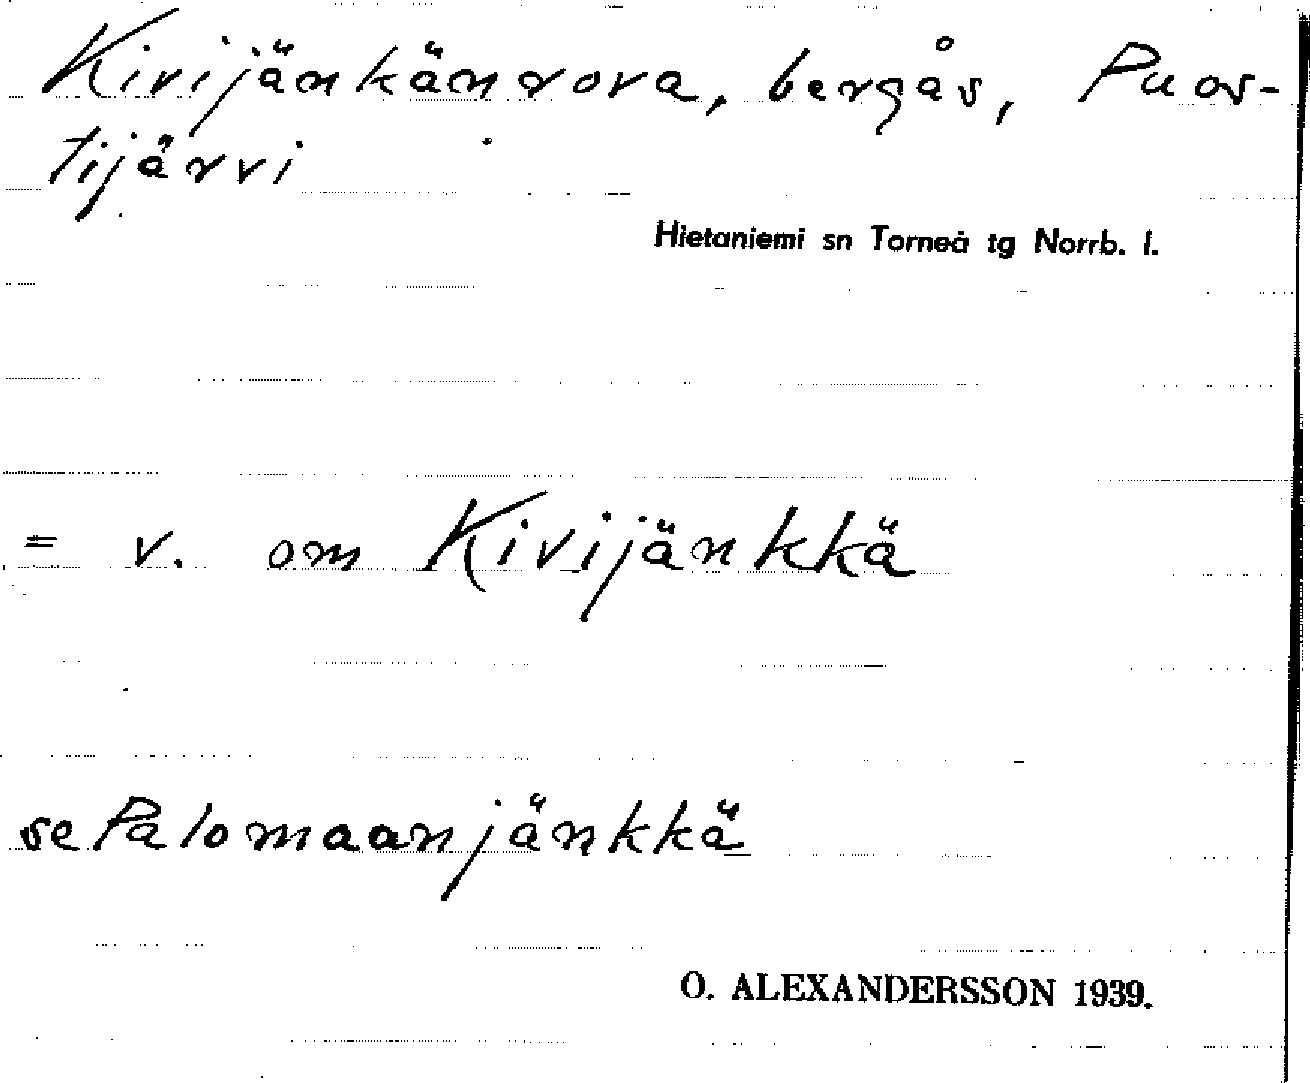 Kivijänkänrova, bergås, Puos-
tijärvi
Hietaniemi sn Torneå tg Norrb. l.
= v. om Kivijänkkä
se Palomaanjänkkä
O. ALEXANDERSSON 1939.